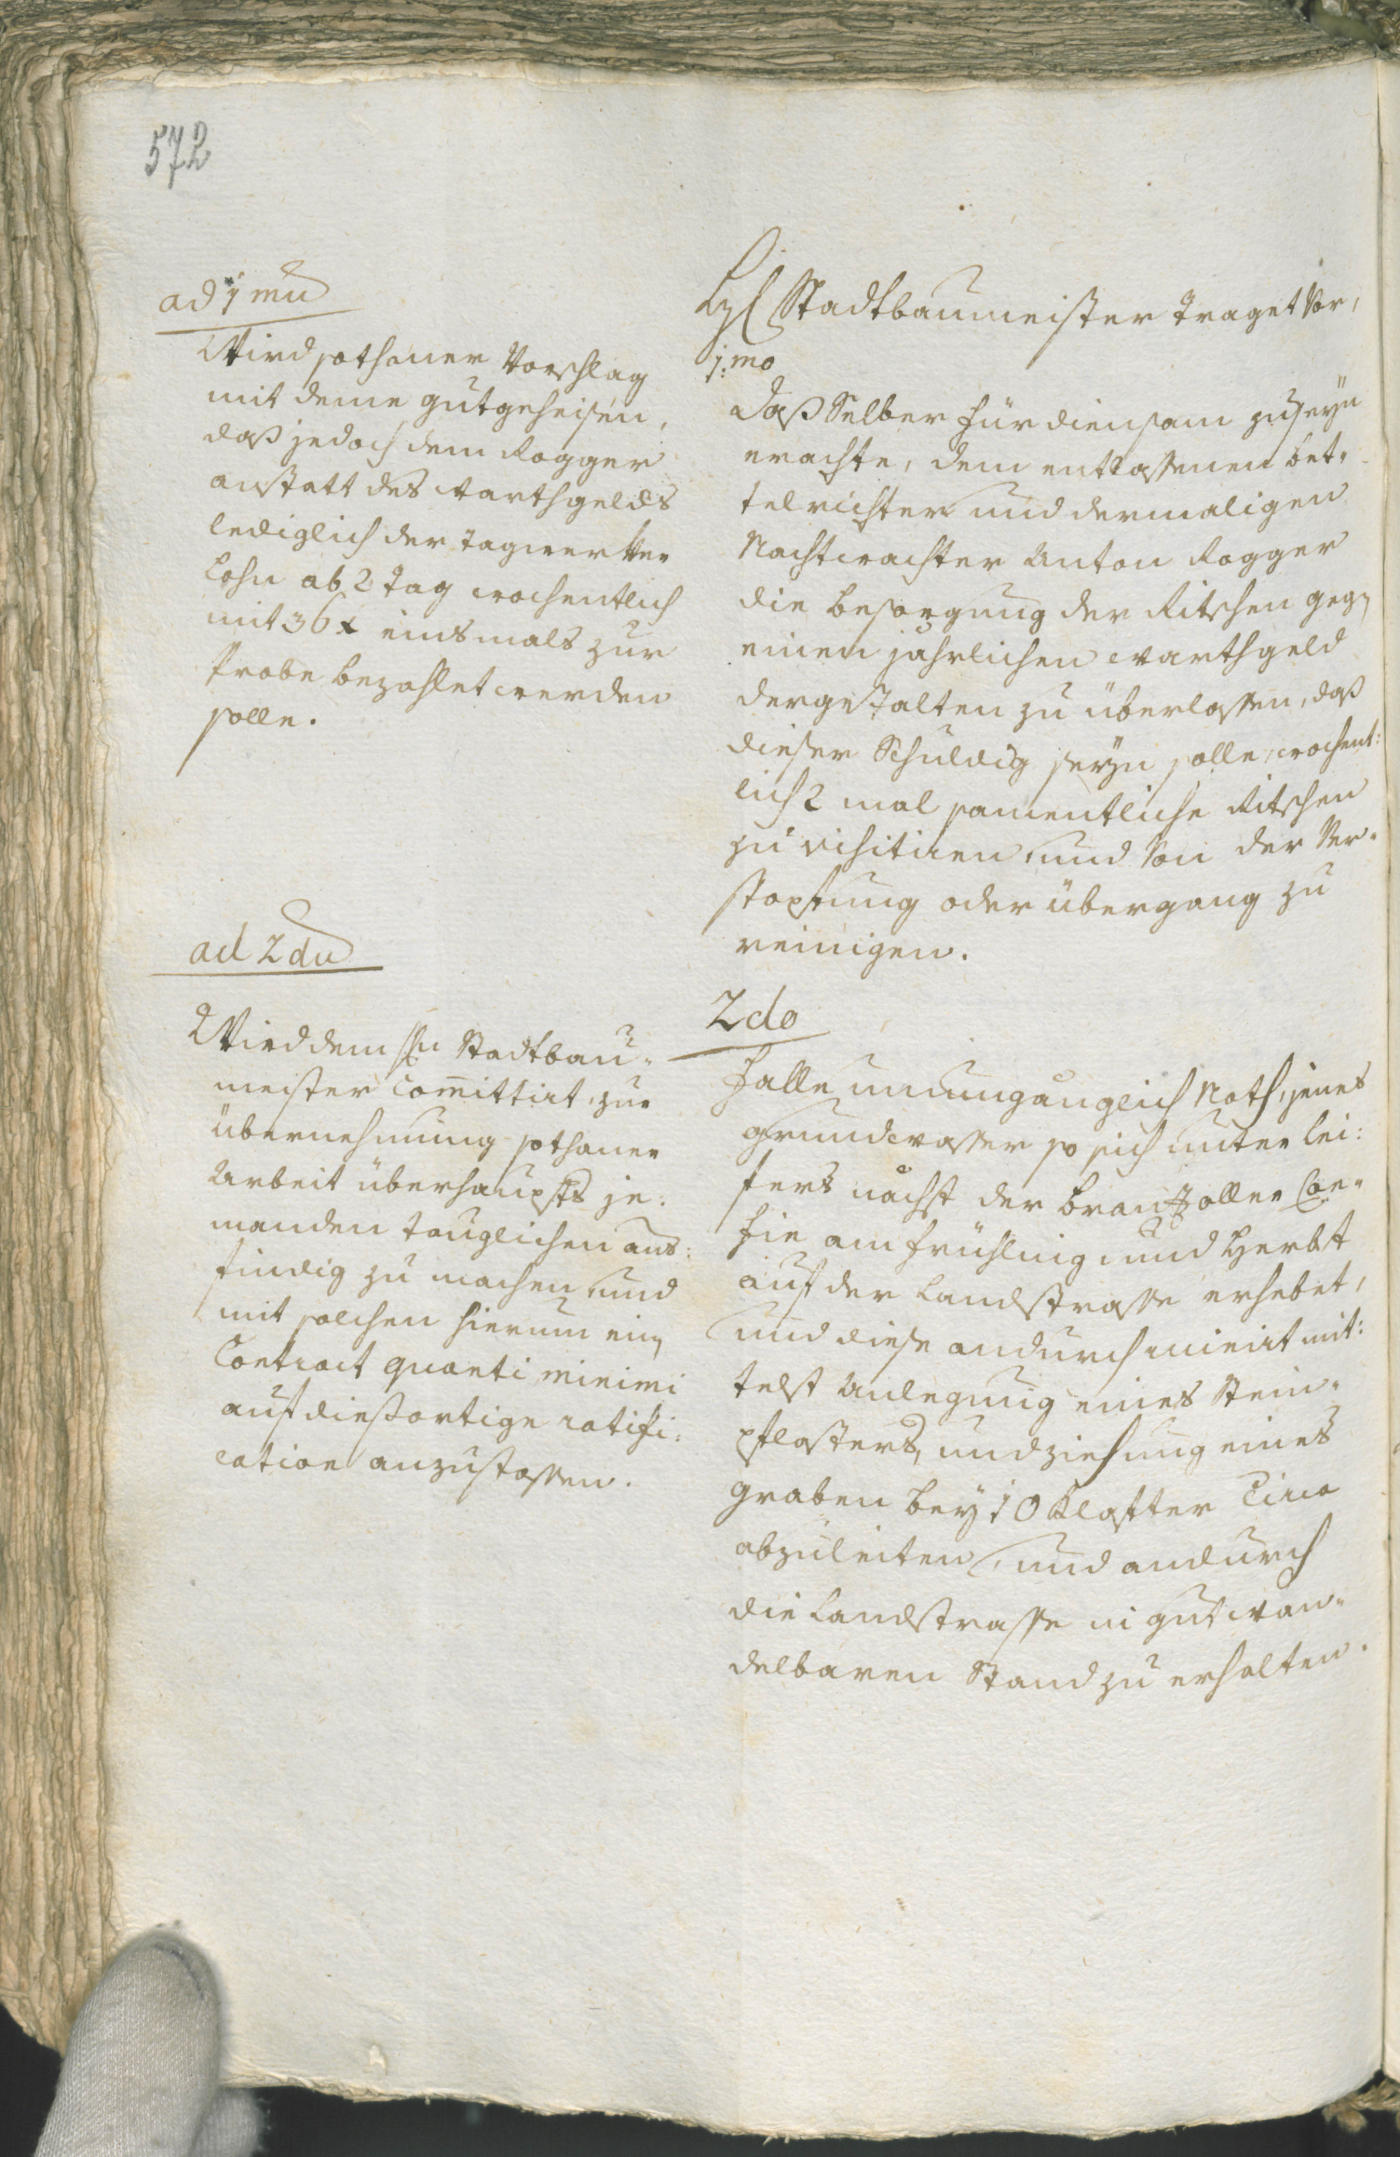 572
ad 1mu
Wird sothaner Vorschlag
mit deme gutgeheisen,
daß jedoch dem Rogger
anstatt des Warthgelds
lediglich der tagwerkher
Lohn ab 2 tag wochentlich
mit 36 x einsmals zur
Probe bezahlet werden
solle.
ad 2du
Wird dem Hn Stadtbau-
meister Com̄ittirt, zur
übernehmung sothaner
Arbeit überhaupts je-
manden tauglichen aus-
findig zu machen, und
mit solchen hierum ein
Contract quanti minimi
auf diesortige ratifi-
cation anzustossen.
Stadtbaumeister traget Vor,
1:mo
daß Selber für diensam zu seyn
erachte, dem entlassenen bet-
telrichter und dermaligen
Nachtwachter Anton Rogger
die besorgung der Ritschen geg
einen jahrlichen warthgeld
dergestalten zu überlassen, daß
dieser Schuldig seyn solle, wochent:
lich 2 mal samentliche Ritschen
zu visitiren, und von der Ver-
stopfung oder übergang zu
reinigen.
2do
Falle unumgänglich Noth, jenes
grundwasser so sich unter Lei-
fers nächst der branzoller Con-
fin am frühling und Herbst
auf der Landstrasse erhebet,
und diese andurch ruinirt mit-
telst Anlegung eines Stein-
pflasters, und ziehung eines
graben bey 10 Klafter Circa
abzuleiten, und andurch
die Landstrasse in gut wan-
delbaren Stand zu erhalten.